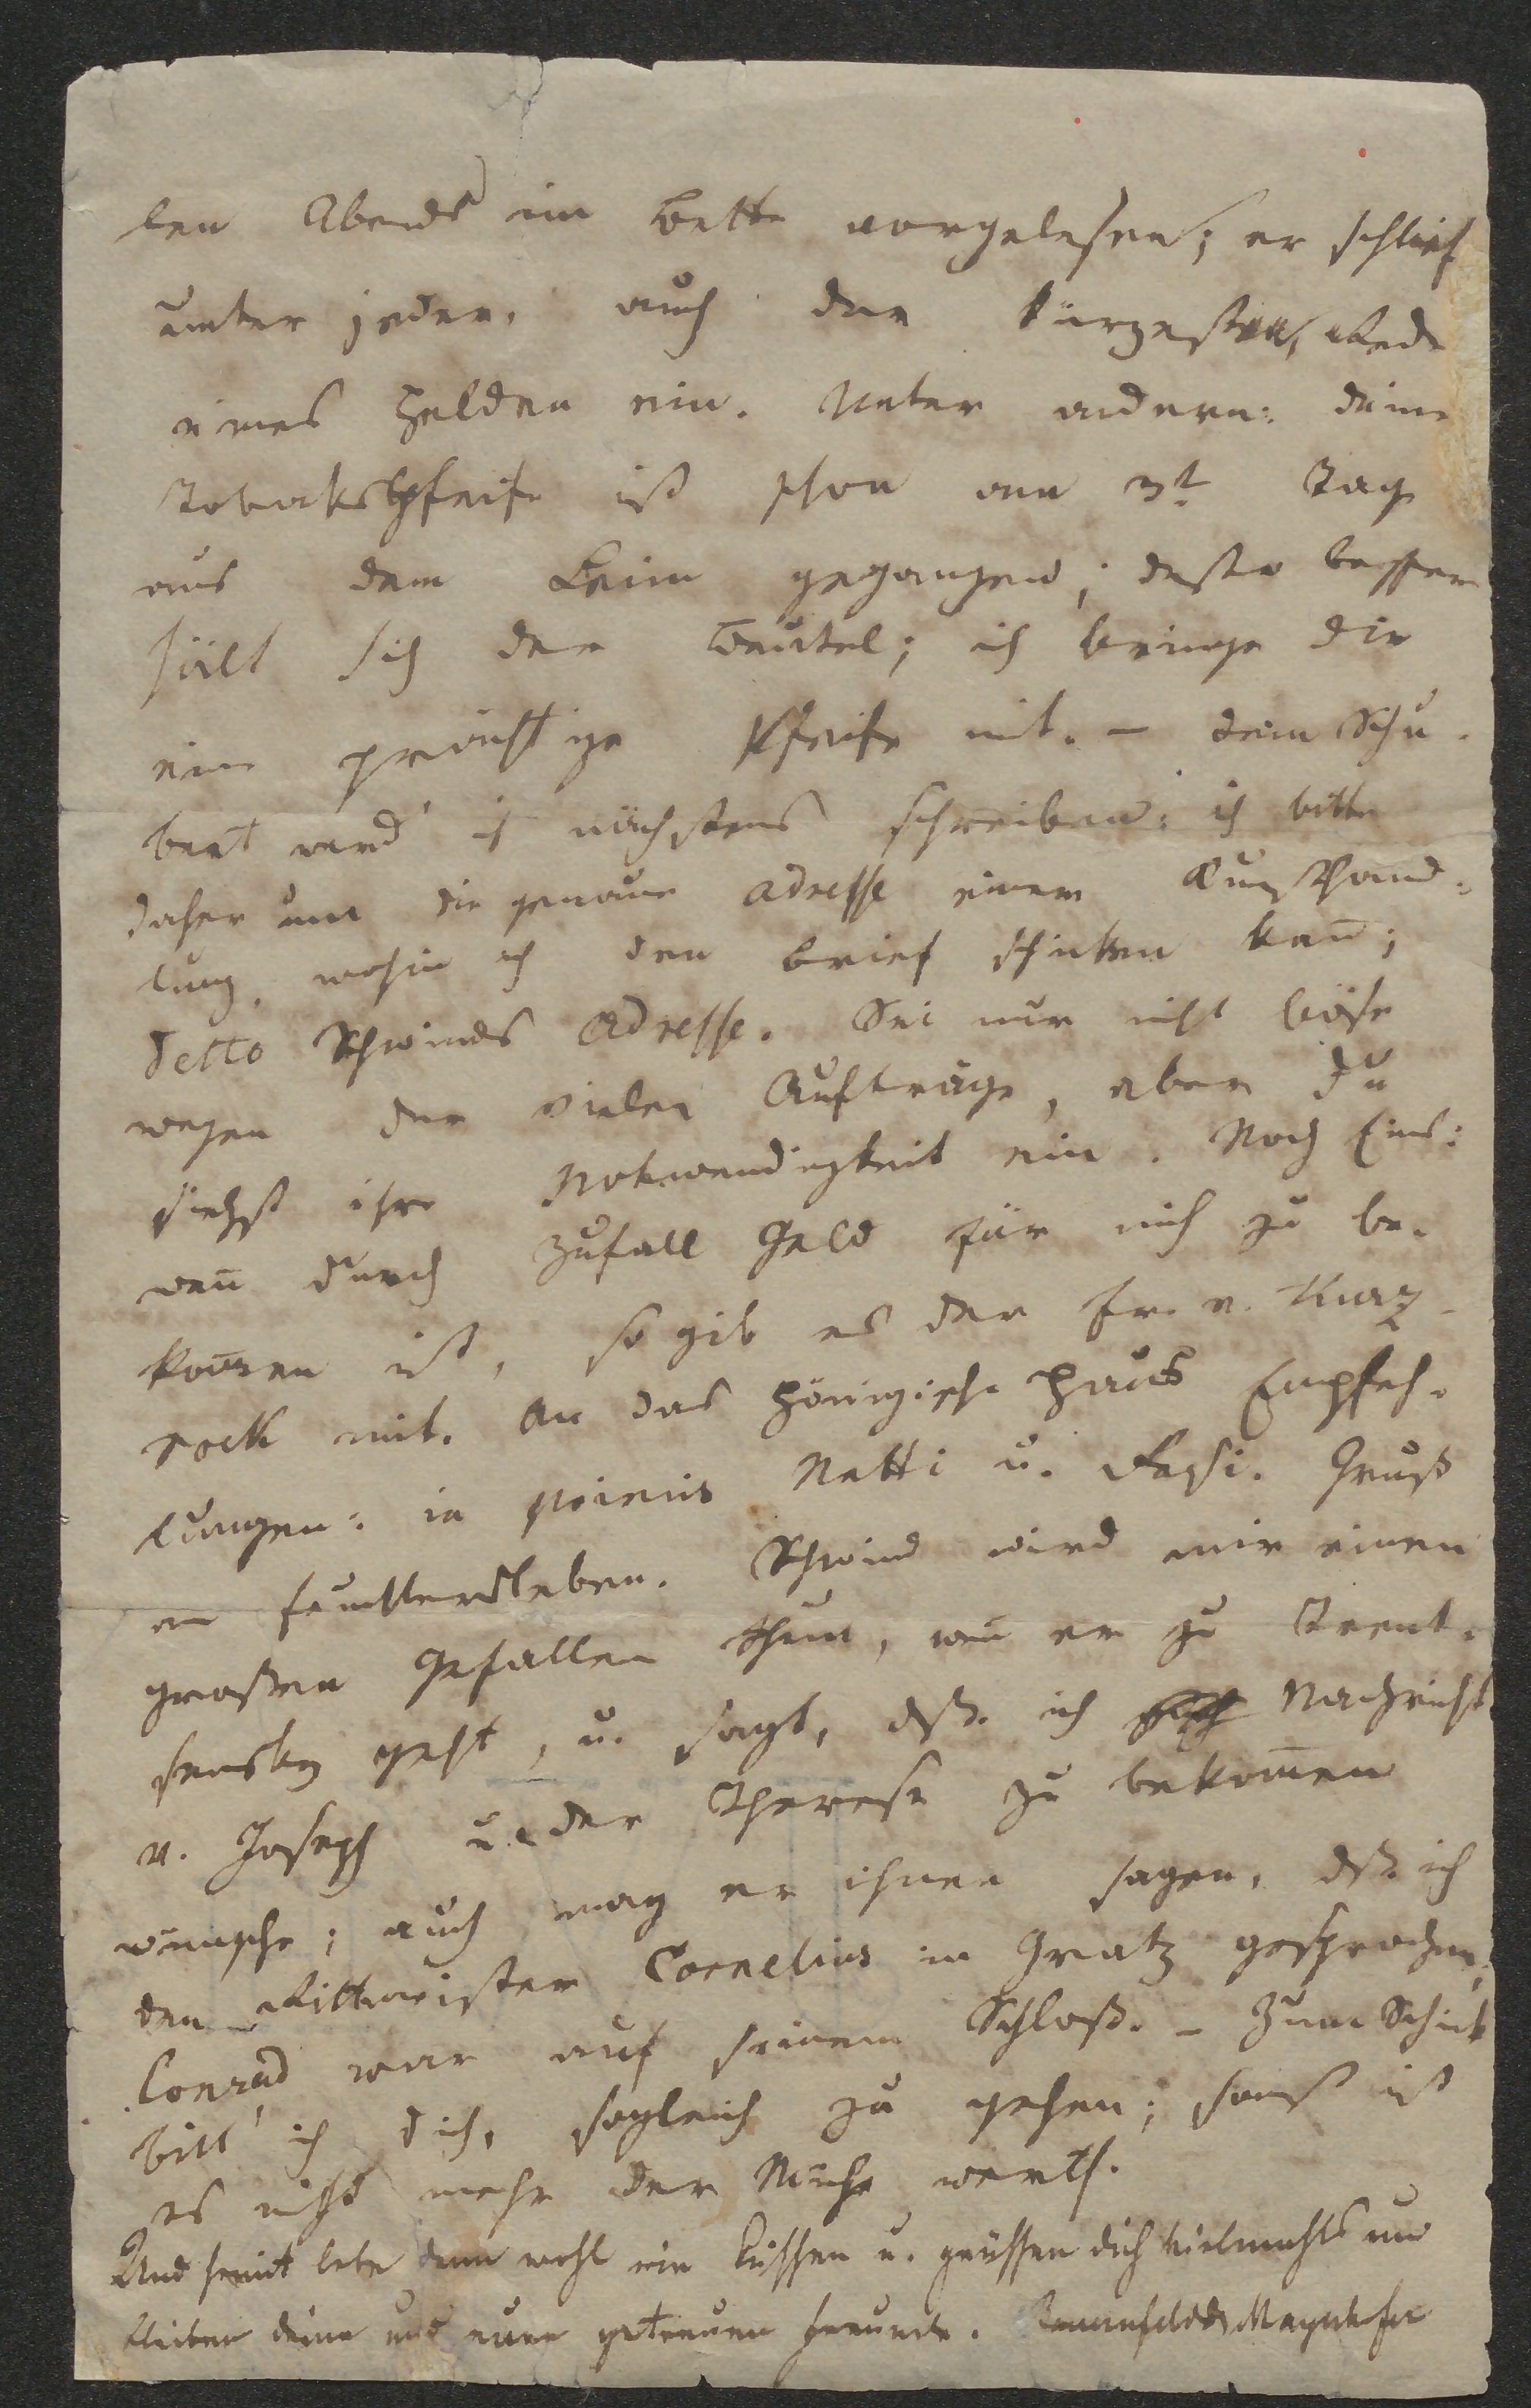 len Abends im Bette vorgelesen; er schlief
unter jeder, auch der kürzesten, Rede
eines Helden ein. Unter andern: deine
Tobakspfeife ist schon am 3t Tag
aus dem Leim gegangen; desto besser
hält sich der Beutel; ich bringe dir
eine prächtige Pfeife mit. – dem Schu-
bert werd' ich nächstens schreiben; ich bitte
daher um die genaue Adresse einer Kunsthand-
lung, wohin ich den Brief schicken kañ;
detto Schwinds Adresse. Sei nur nicht böse
wegen der vielen Aufträge, aber du
siehst ihre Notwendigkeit ein. Noch Eins:
weñ durch Zufall Geld für mich zu be-
kom̅en ist, so gib es der Fr. v. Kurz-
rock mit. An das Hönigische Haus Empfeh-
lungen: in Netti u. Gruß
an Feuchtersleben. Schwind wird mir einen
großen Gefallen thun, weñ er zu Trent-
sensky geht, u. sagt, dß. ich Nachricht
v. Joseph u. der Therese zu bekom̅en
wünsche; auch mag er ihnen sagen, dß. ich
den Rittmeister Cornelius in Gratz gesprochen;
Conrad war auf seinem Schloß. – Zum Schick
bitt' ich dich, sogleich zu gehen; sonst ist
es nicht mehr der Mühe werth.
Und somit lebe denn wohl wir küssen u. grüssen dich vielmahls und
bleiben deine und eure getreuen Freunde. Bauernfeld Mayerhofer